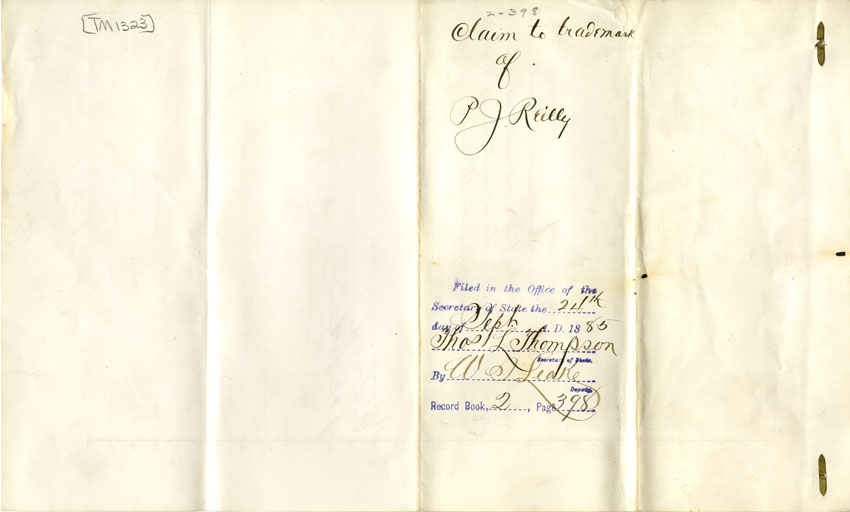 [TM1323]
2-398
Claim to trademark
of
P J Reilly
Filed in the Office of the
Secretary of State the 24th
day of Sept A. D. 1885
Thos L Thompson
Secretary of State.
By W S Leake
Deputy.
Record Book, 2, Page 398